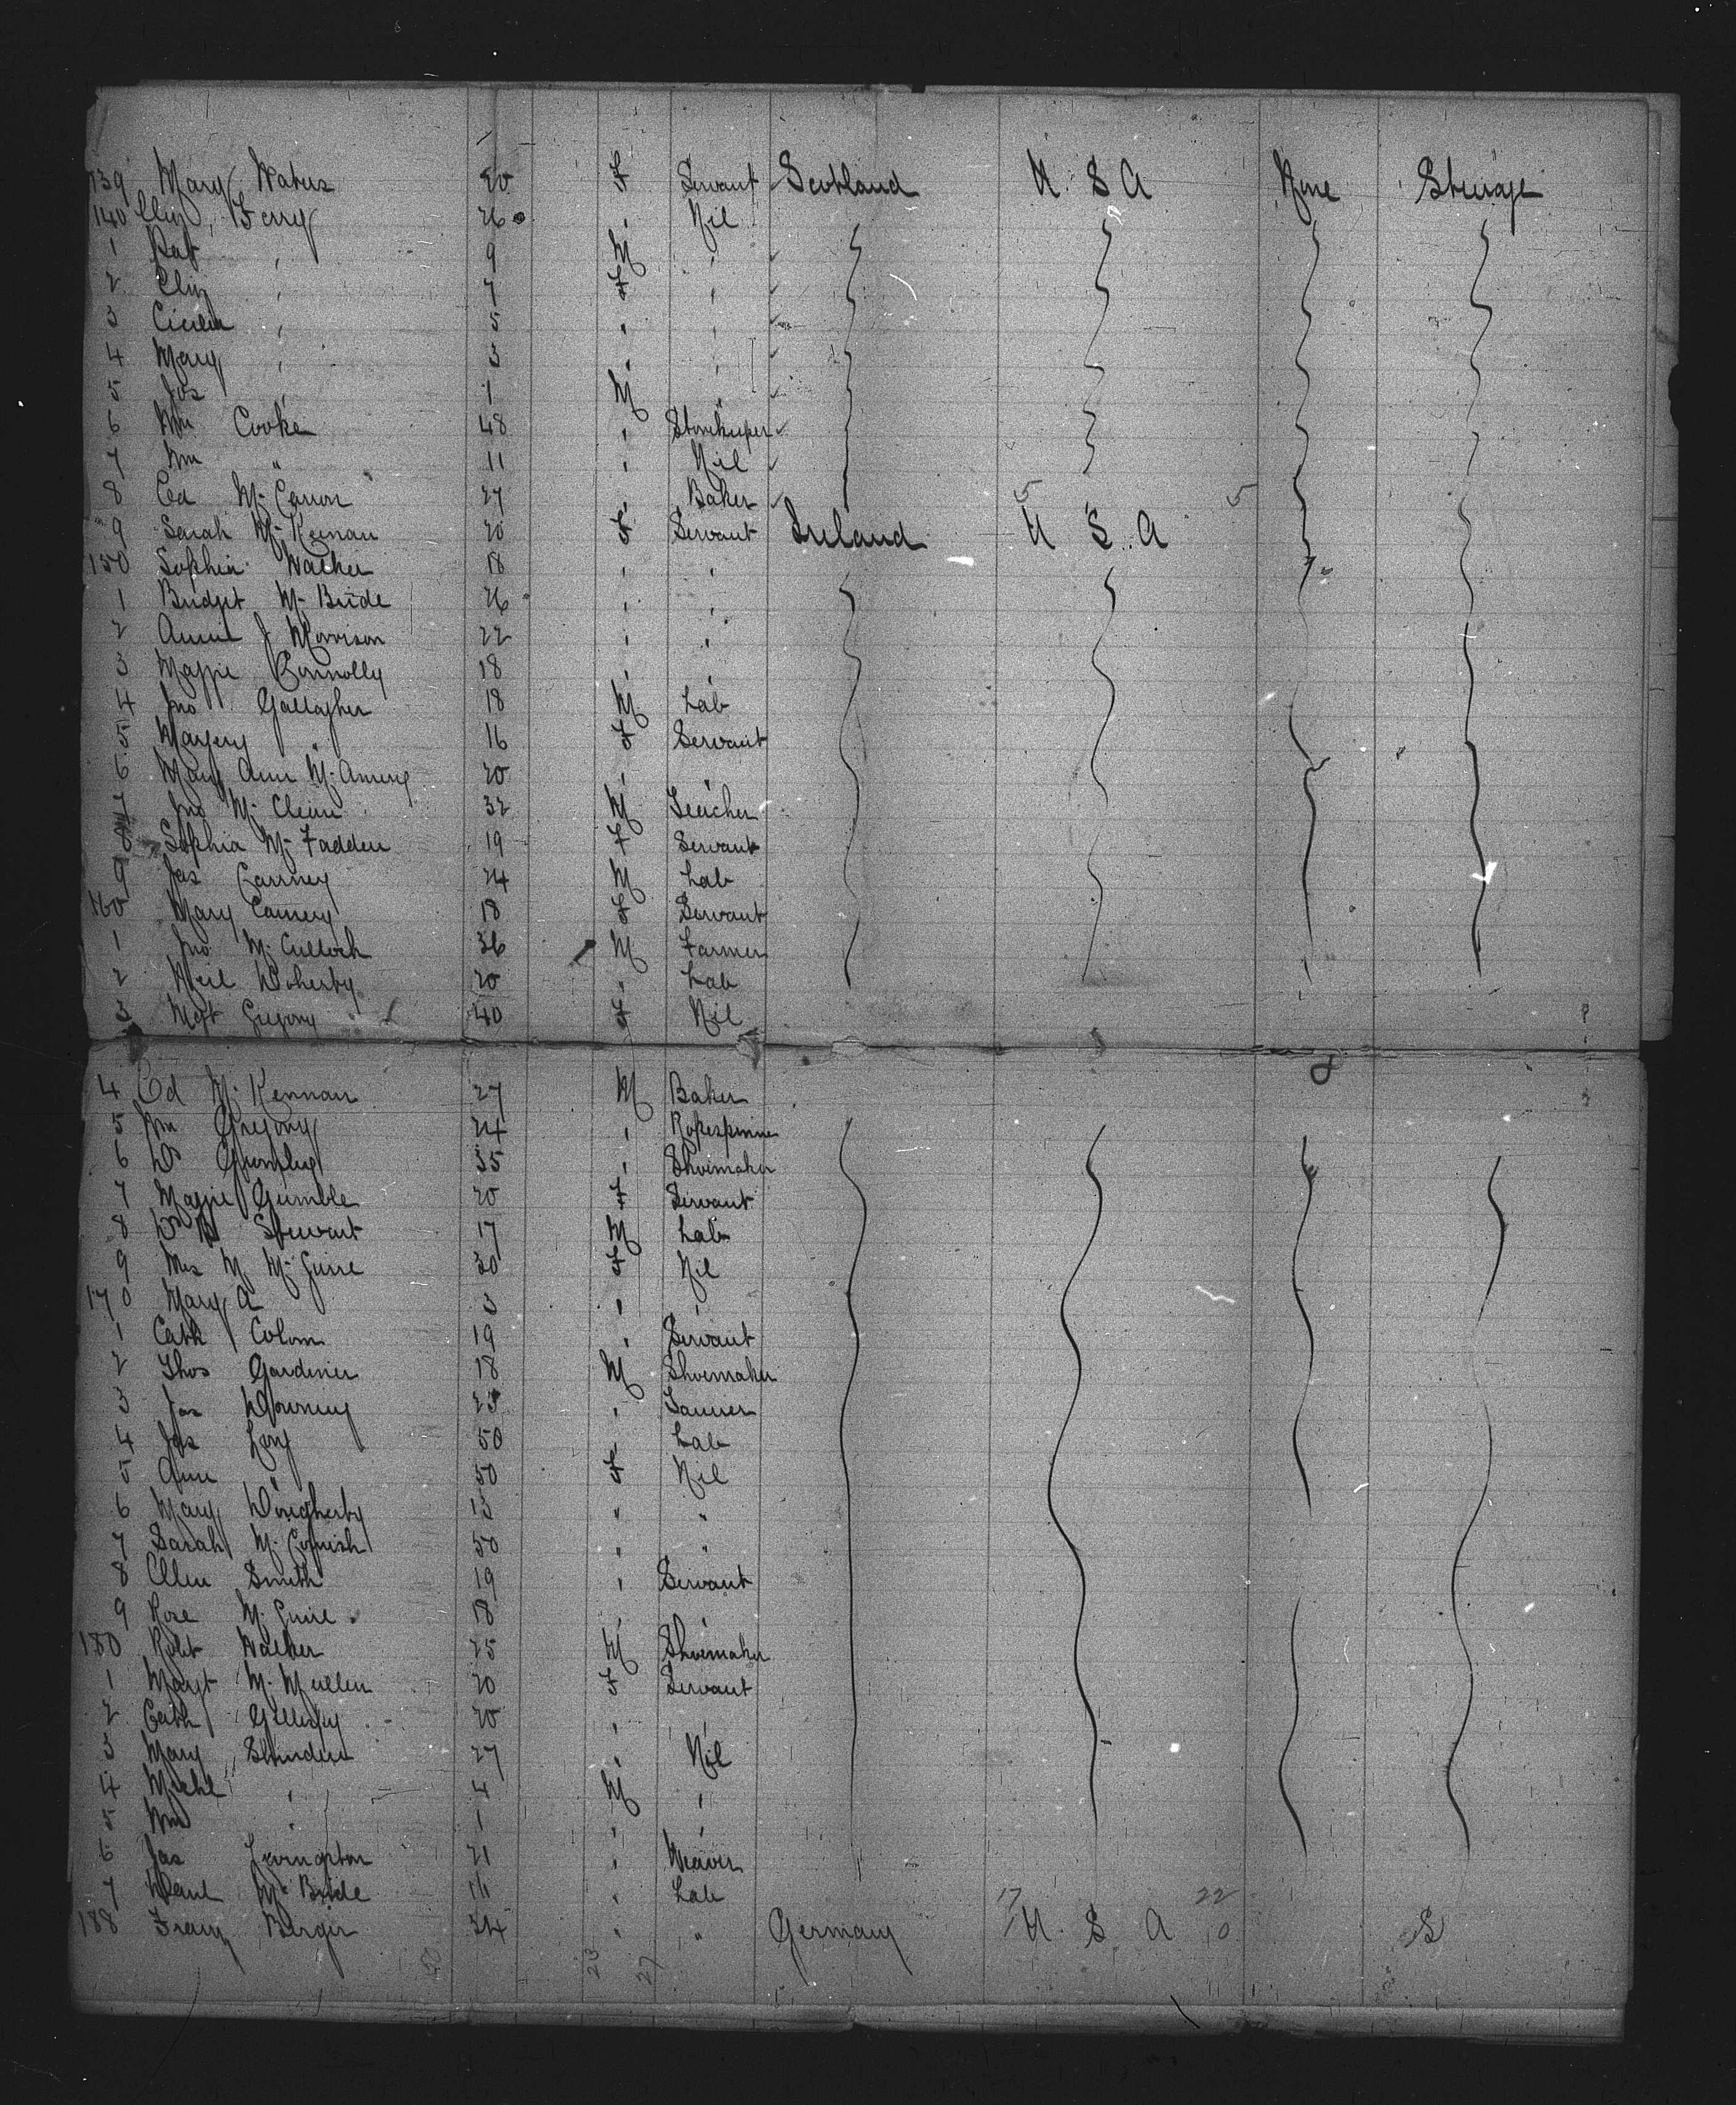 139 Mary Waters 20 F Servant Scotland U. S A None Steerage
140 Eliz Ferry 26 " Nil
1 Pat " 9 M "
2 Eliz " 7 F "
3 Cicilia " 5 " "
4 Mary " 3 " "
5 Jos " 1 M "
6 Wm Cooke 48 " Storekeeper
7 Wm " 11 " Nil
8 Ed Mc Carron 27 " Baker 5 5
9 Sarah Mc Keenan 20 F Servant Ireland U S A
150 Sophia Walker 18 " "
1 Bridget Mc Bride 26 " "
2 Annie J Morrison 22 " "
3 Maggie Connolly 18 " "
4 Jno Gallagher 18 M Lab
5 Margery " 16 F Servant
6 Mary Ann Mc 20 " "
7 Jno Mc Clean 32 M Teacher
8 Sophia Mc Fadden 19 F Servant
9 Jas 24 M Lab
160 Mary 18 F Servant
1 Jno Mc Culloch 36 M Farmer
2 Neil Doherty 20 " Lab
3 Mgt Gregory 40 F Nil
4 Ed Mc Kennan 27 M Baker
5 Wm Gregory 24 " Ropespinner
6 D 35 " Shoemaker
7 Maggie Gumble 20 F Servant
8 Stewart 17 M Lab
9 Mrs M Mc Guire 30 F Nil
170 Mary A 3 " "
1 Cath 19 " Servant
2 Thos Gardiner 18 M Shoemaker
3 Jas Downey 23 "
4 Jas 50 " Lab
5 Ann " 50 F Nil
6 Mary Dougherty 13 " "
7 Sarah Mc 50 " "
8 Ellen Smith 19 " Servant
9 Rose Mc Guire 18 " "
180 Robt Walker 25 M Shoemaker
1 Margt Mc Mullen 20 F Servant
2 Cath 20 " "
3 Mary 27 " Nil
4 Michl " 4 M "
5 Wm " 1 " "
6 Jas Livingston 21 " Weaver
7 Danl Mc Bride " Lab 17 22
188 Berger 34 " " Germany U. S A 0 S
23 27